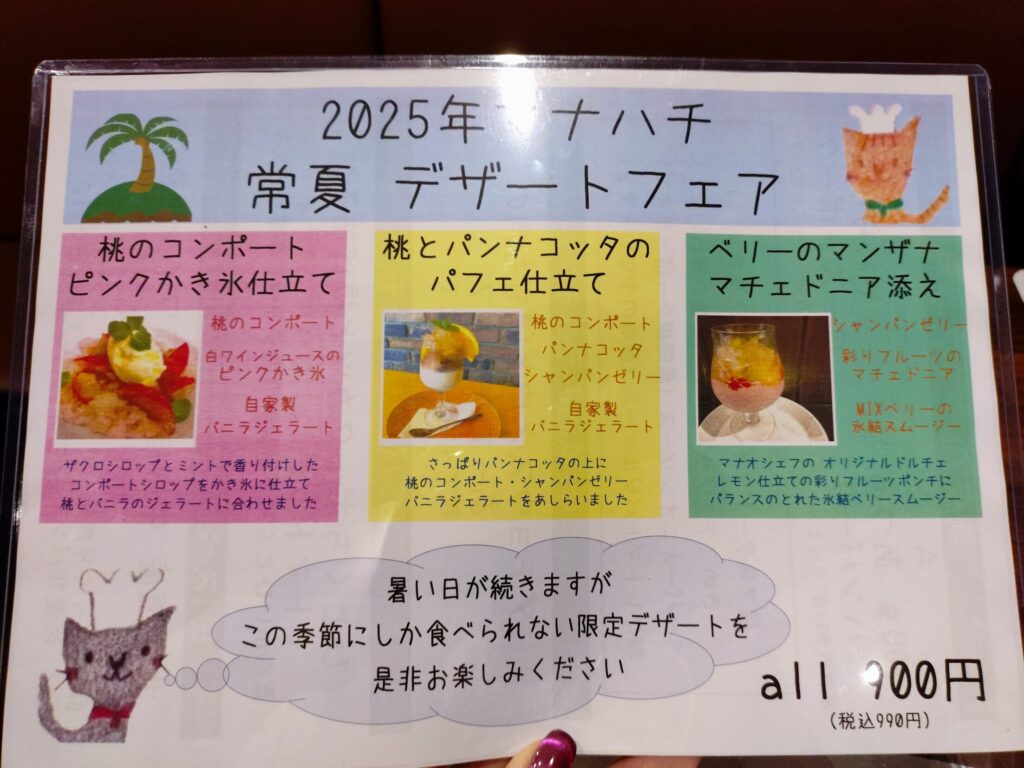 2025年 ナハチ
常夏 デザートフェア
桃のコンポート
ピンクかき氷仕立て
桃のコンポート
白ワインジュースの
ピンクかき氷
自家製
バニラジェラート
ザクロシロップとミントで香り付けした
コンポートシロップをかき氷に仕立て
桃とバニラのジェラートに合わせました
桃とパンナコッタの
パフェ仕立て
桃のコンポート
パンナコッタ
シャンパンゼリー
自家製
バニラジェラート
さっぱりパンナコッタの上に
桃のコンポート・シャンパンゼリー
バニラジェラートをあしらいました
ベリーのマンザナ
マチェドニア添え
シャンパンゼリー
彩りフルーツの
マチェドニア
MIXベリーの
氷結スムージー
マナオシェフの オリジナルドルチェ
レモン仕立ての彩りフルーツポンチに
バランスのとれた氷結ベリースムージー
暑い日が続きますが
この季節にしか食べられない限定デザートを
是非お楽しみください
all 900円
(税込990円)